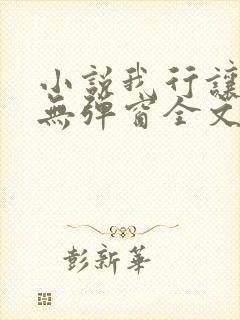 小説我行讓
無彈窗全文
彭新華